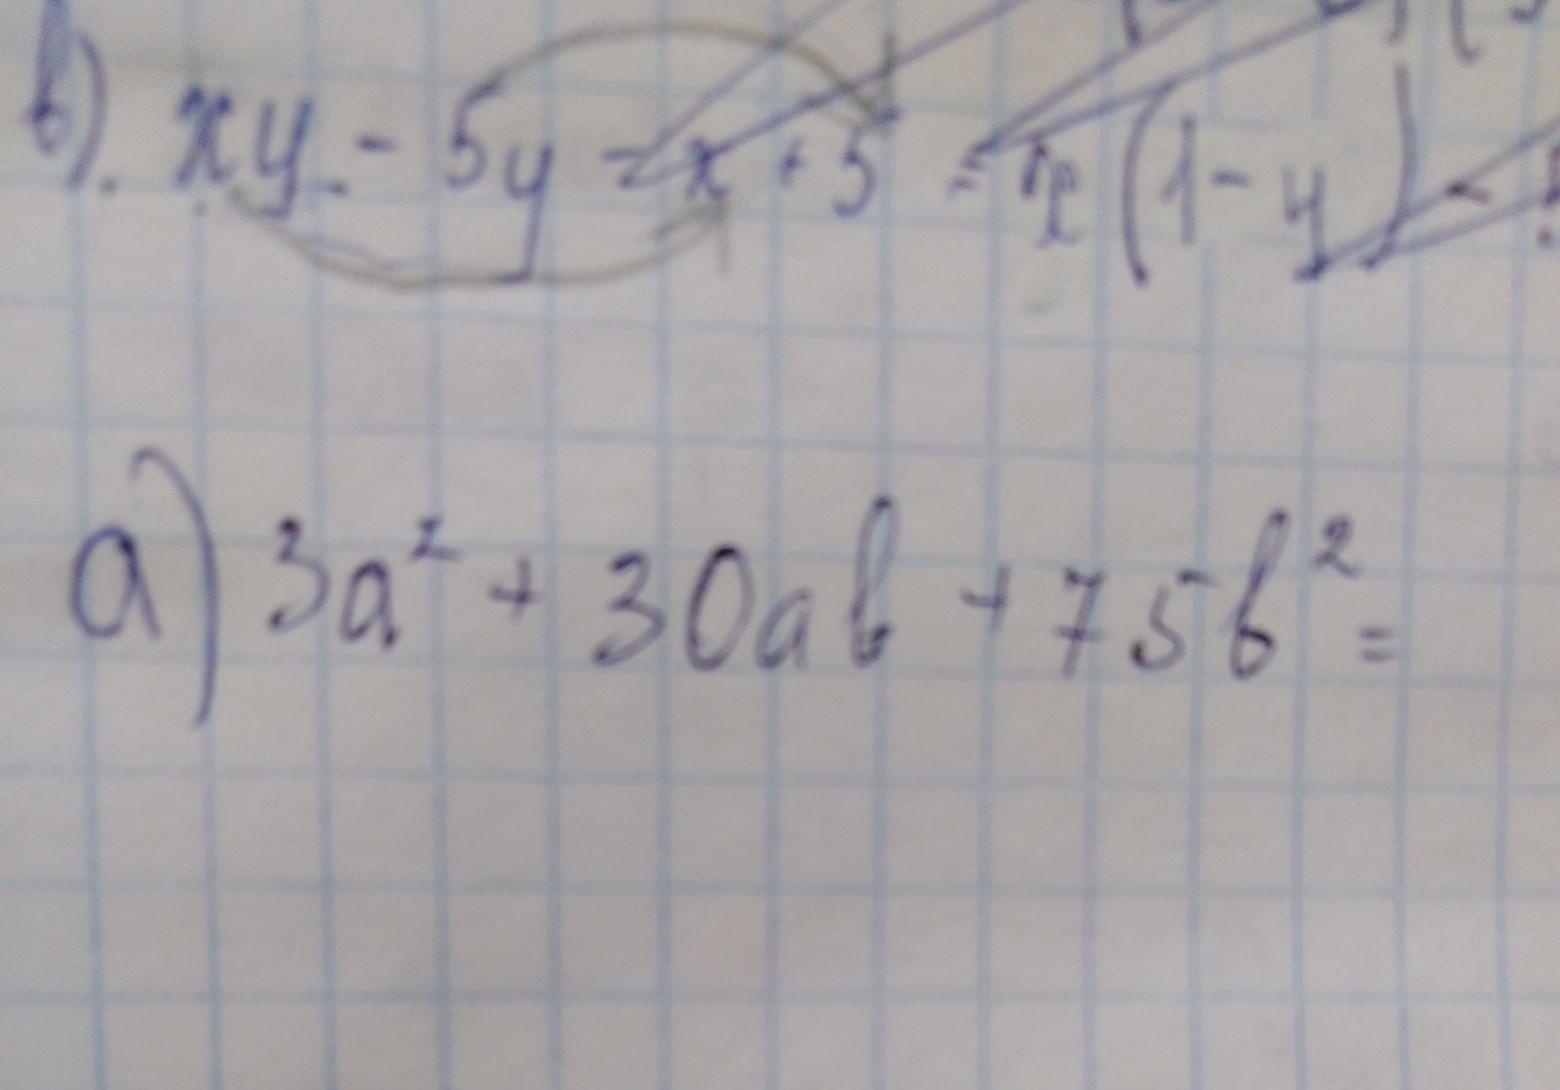 в). xy - 5y - x + 5 = x(1-y) -
а) 3a² + 30ab + 75b² =